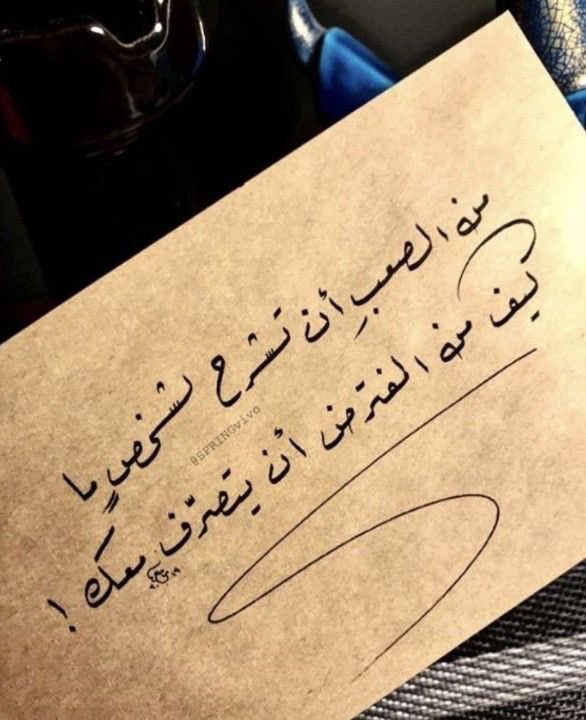 من الصعبِ أن تشرح لشخصٍ ما
كيف من المفترض أن يتصرّف معك !
@SPRINGvivo